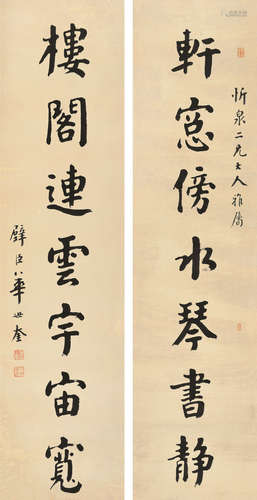 軒窓傍水琴書静
忻泉二兄大人雅属
樓閣連雲宇宙寬
璧臣華世奎